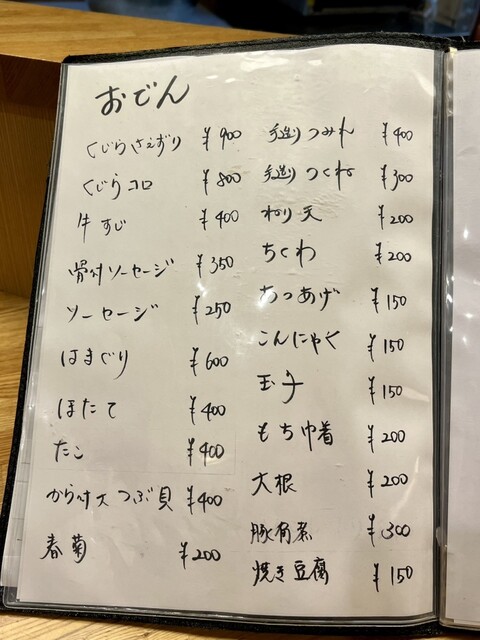 おでん
くじらさえずり ¥900
くじらコロ ¥800
牛すじ ¥400
骨付ソーセージ ¥350
ソーセージ ¥250
はまぐり ¥600
ほたて ¥400
たこ ¥400
からつけ大つぶ貝 ¥400
春菊 ¥200
手造りつみれ ¥400
手造りつくね ¥300
ねり天 ¥200
ちくわ ¥200
あつあげ ¥150
こんにゃく ¥150
玉子 ¥150
もち巾着 ¥200
大根 ¥200
豚角煮 ¥300
焼き豆腐 ¥150